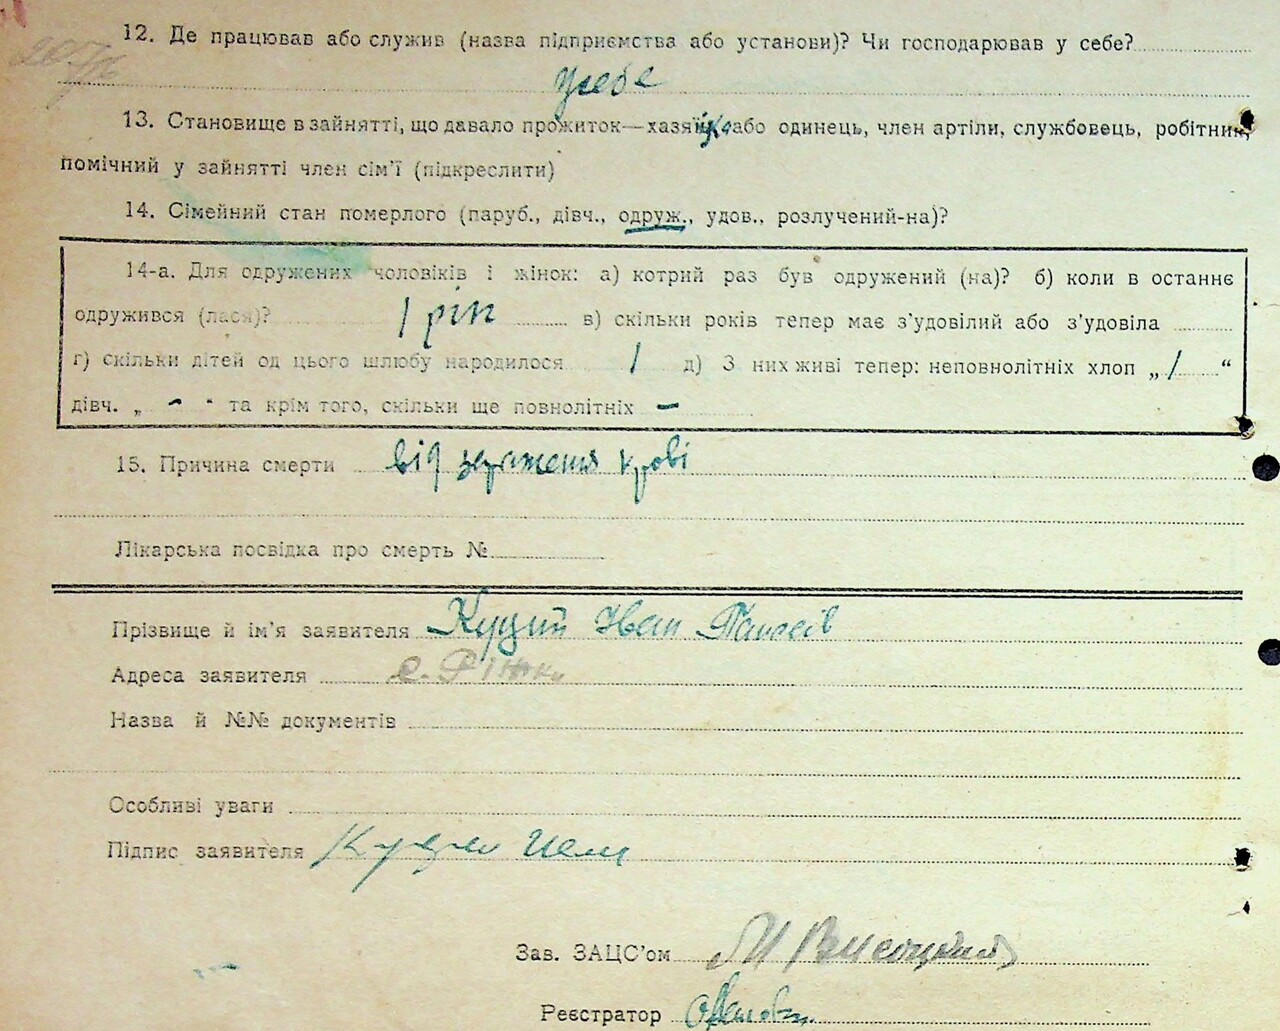 12. Де працював або служив (назва підприємства або установи)? Чи господарював у себе?
у себе
13. Становище в зайнятті, що давало прожиток—хазяїн або одинець, член артіли, службовець, робітник,
помічний у зайнятті член сім'ї (підкреслити)
14. Сімейний стан померлого (паруб., дівч., одруж., удов., розлучений-на)?
14-а. Для одружених чоловіків і жінок: а) котрий раз був одружений (на)? б) коли в останнє
одружився (лася)? 1 рік в) скільки років тепер має з'удовілий або з'удовіла
г) скільки дітей од цього шлюбу народилося 1 д) З них живі тепер: неповнолітніх хлоп „ 1 “
дівч. „ - " та крім того, скільки ще повнолітніх -
15. Причина смерти від зараження крові
Лікарська посвідка про смерть №
Прізвище й ім'я заявителя Куций Іван
Адреса заявителя с. Ріжки
Назва й №№ документів
Особливі уваги
Підпис заявителя
Зав. ЗАЦС'ом Висоцкий
Реєстратор